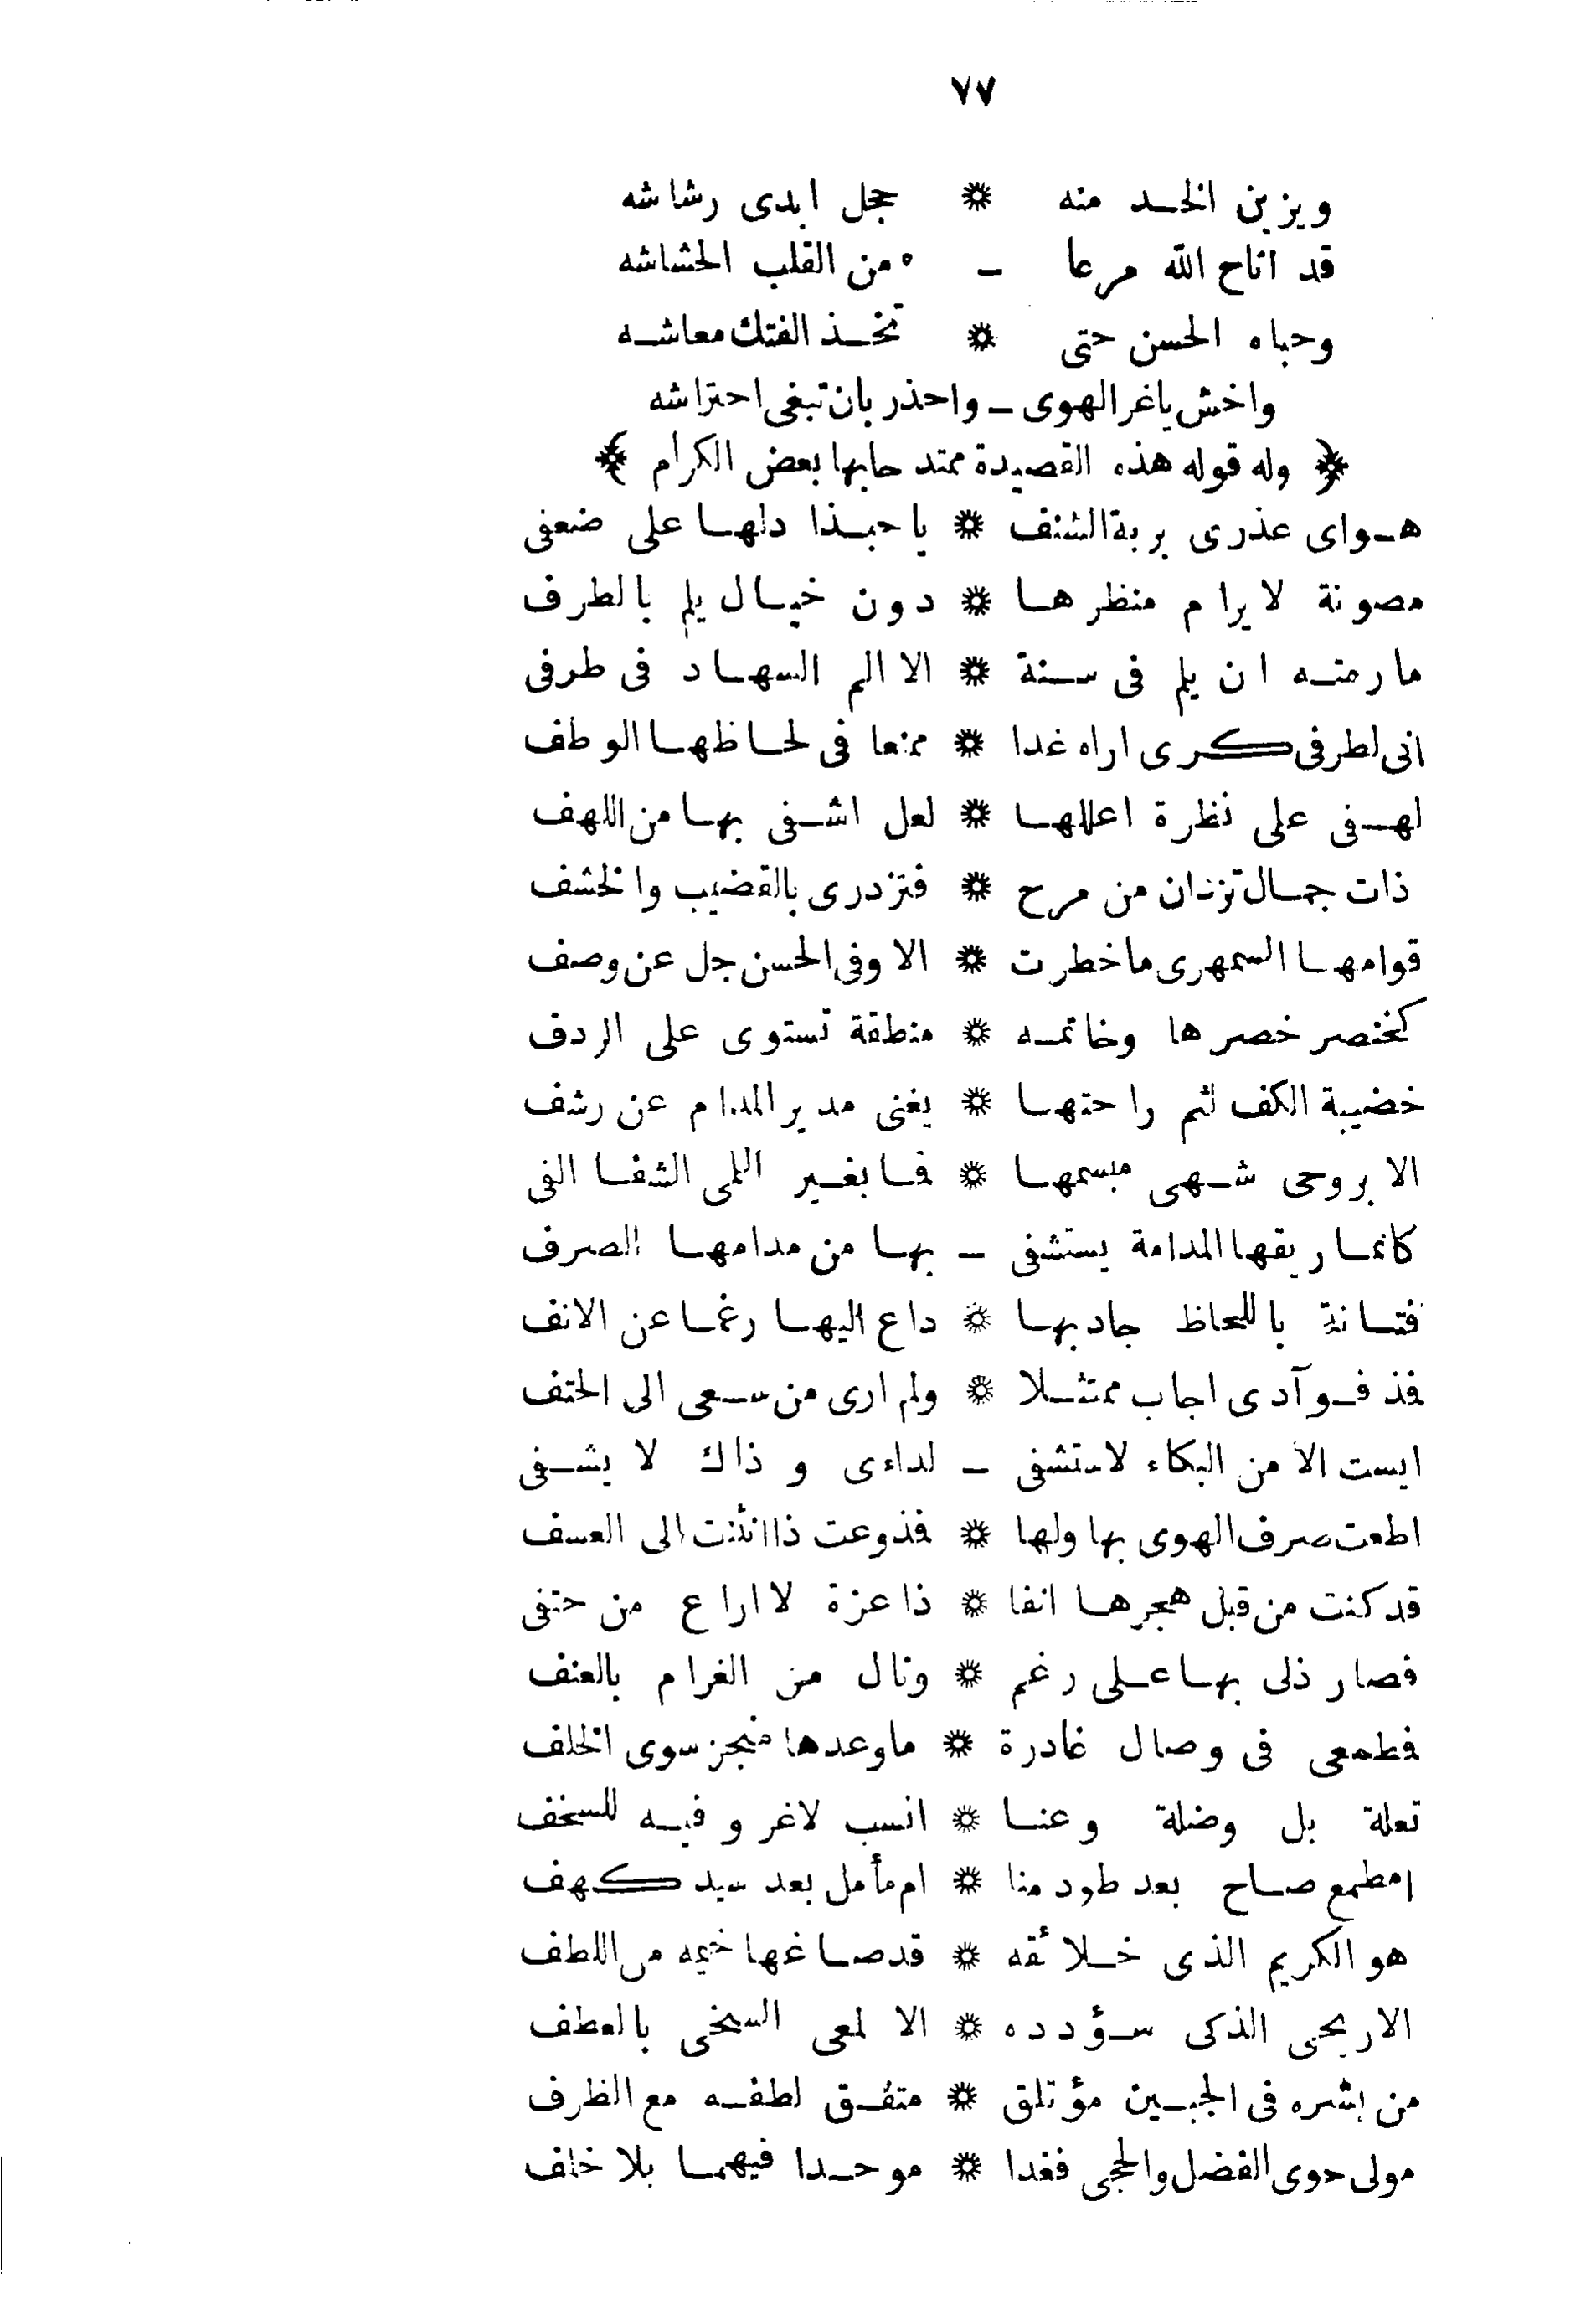 ٧٧
ويزين الخد منه * خجل ابدى رشاشه
قد اتاح الله مرعا – ه من القلب الحشاشه
وحباه الحسن حتى * تخذ الفتك معاشه
واخش ياغر الهوى – واحذر بان تبغى احتراشه
﴿ وله قوله هذه القصيدة ممتدحا بها بعض الكرام ﴾
هواى عذرى بربة الشنف * ياحبذا دلها على ضعفى
مصونة لايرام منظرها * دون خيال يلم بالطرف
مارمته ان يلم فى سنة * الا الم السهاد فى طرفى
انى لطرفى كرى اراه غدا * ممنعا فى لحاظها الوطف
لهفى على نظرة اعللها * لعل اشفى بها من اللهف
ذات جمال تزدان من مرح * فتزدرى بالقضيب والخشف
قوامها السمهرى ماخطرت * الا وفى الحسن جل عن وصف
كخنصر خصرها وخاتمه * منطقة تستوى على الردف
خضيبة الكف لثم راحتها * يغنى مدير المدام عن رشف
الا بروحى شهى مبسمها * فما بغير اللمى الشفا الفى
كانما ريقها المدامة يستشفى – بها من مدامها الصرف
فتانة باللحاظ جادبها * داع اليها رغما عن الانف
فذ فوآدى اجاب ممتثلا * ولم ارى من سعى الى الحتف
ايست الا من البكاء لاستشفى – لداءى و ذاك لا يشفى
اطعت صرف الهوى بها ولها * فذوعت ذا انثنت الى العسف
قد كنت من قبل هجرها انفا * ذا عزة لا اراع من حتفى
فصار ذلى بها على رغم * ونال من الغرام بالعنف
فطمعى فى وصال غادرة * ماوعدها منجز سوى الخلف
تعلة بل وضلة وعنا * انسب لاغر و فيه للسخف
امطمع صاح بعد طود منا * ام مأمل بعد سيد كهف
هو الكريم الذى خلائقه * قد صاغها خيمه من اللطف
الاريحى الذكى سؤدده * الا لمعى السخى بالعطف
من بشره فى الجبين مؤتلق * متفق لطفه مع الظرف
مولى حوى الفضل والحجى فغدا * موحدا فيهما بلا خلف